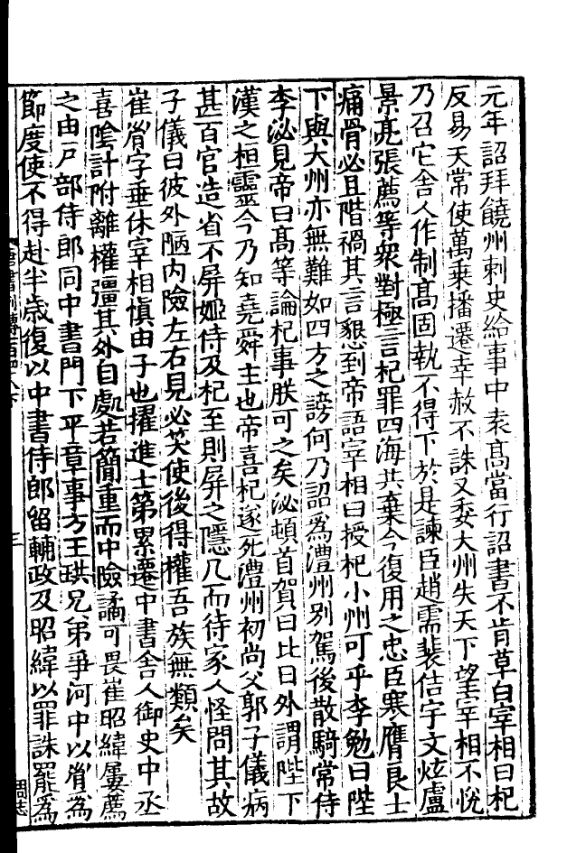 元年詔拜饒州刺史給事中袁高當行詔書不肯草白宰相曰杞
反易天常使萬乗播遷幸赦不誅又委大州失天下望宰相不恱
乃召它舍人作制高固執不得下於是諫臣趙需裴佶宇文炫盧
景亮張薦等衆對極言杞罪四海共棄今復用之忠臣寒膺良士
痛骨必且階禍其言懇到帝語宰相曰授杞小州可乎李勉曰陛
下與大州亦無難如四方之謗何乃詔為澧州别駕後散騎常侍
李泌見帝曰高等論杞事朕可之矣泌頓首賀曰比日外謂陛下
漢之桓靈今乃知堯舜主也帝喜杞遂死澧州初尚父郭子儀病
甚百官造省不屏姬侍及杞至則屏之隱几而待家人怪問其故
子儀曰彼外陋内險左右見必笑使後得權吾族無類矣
崔胤字垂休宰相慎由子也擢進士第累遷中書舍人御史中丞
喜隂計附離權彊其外自處若簡重而中險譎可畏崔昭緯屢薦
之由戸部侍郎同中書門下平章事方王珙兄弟爭河中以胤為
節度使不得赴半歳復以中書侍郎留輔政及昭緯以罪誅罷為
三
周志